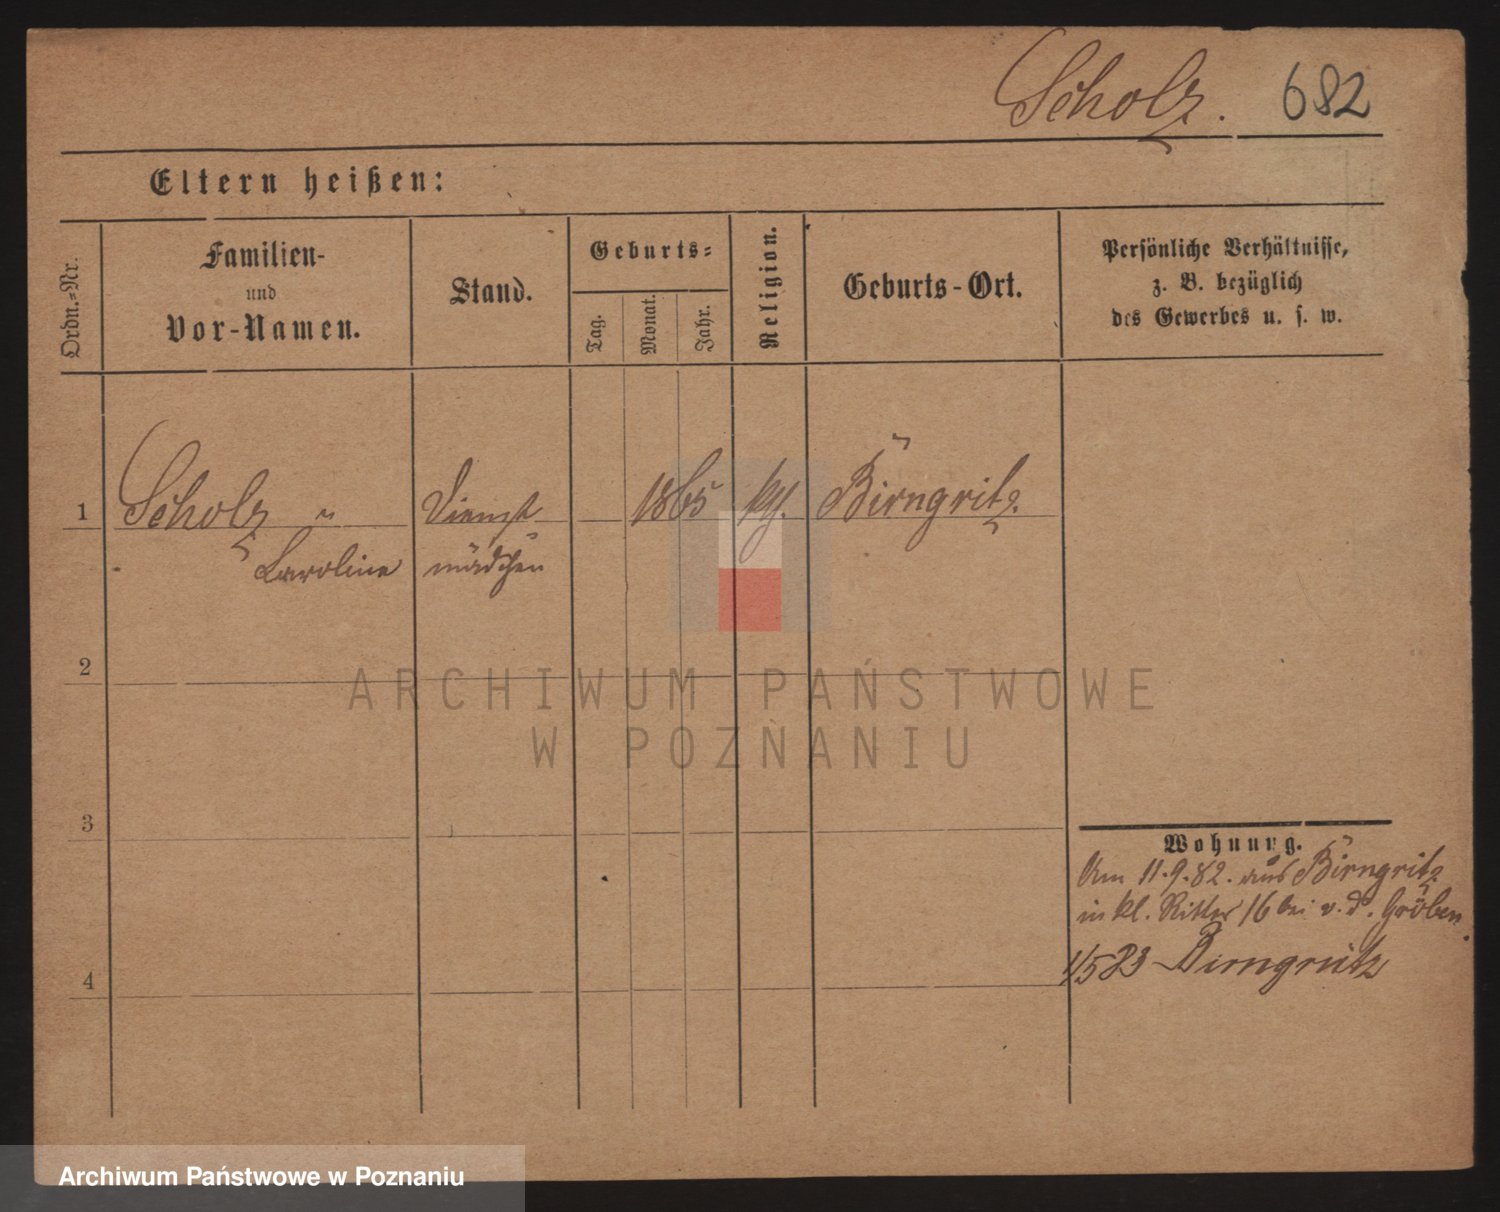 Scholz. 682
Eltern heißen:
Ordn.=Nr.
Familien-
und
Vor-Namen.
Stand.
Geburts=
Tag.
Monat.
Jahr.
Religion.
Geburts-Ort.
Persönliche Verhältnisse,
z. B. bezüglich
des Gewerbes u. s. w.
1 Scholz Dienst 1865 Birngritz.
Caroline mädchen
2
3
4
Wohnung.
Am 11.9.82. aus Birngritz
in kl. Ritter 16 bei v. d. Gröben.
1/5 83 Birngrütz
ARCHIWUM PAŃSTWOWE
W POZNANIU
Archiwum Państwowe w Poznaniu